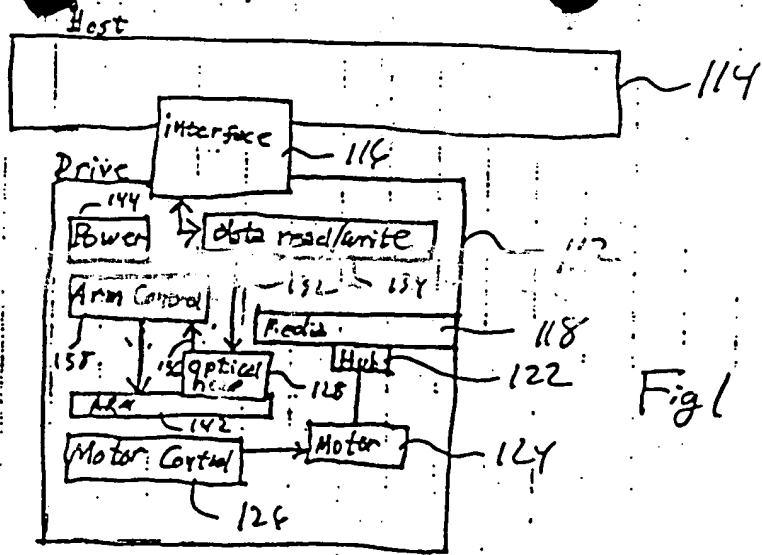 Host
114
interface
116
Drive
144
Power
data read/write
112
Arm Control
132
134
Media
118
138
optical
128
Hub
122
Arm
142
Fig 1
Motor Control
Motor
124
126